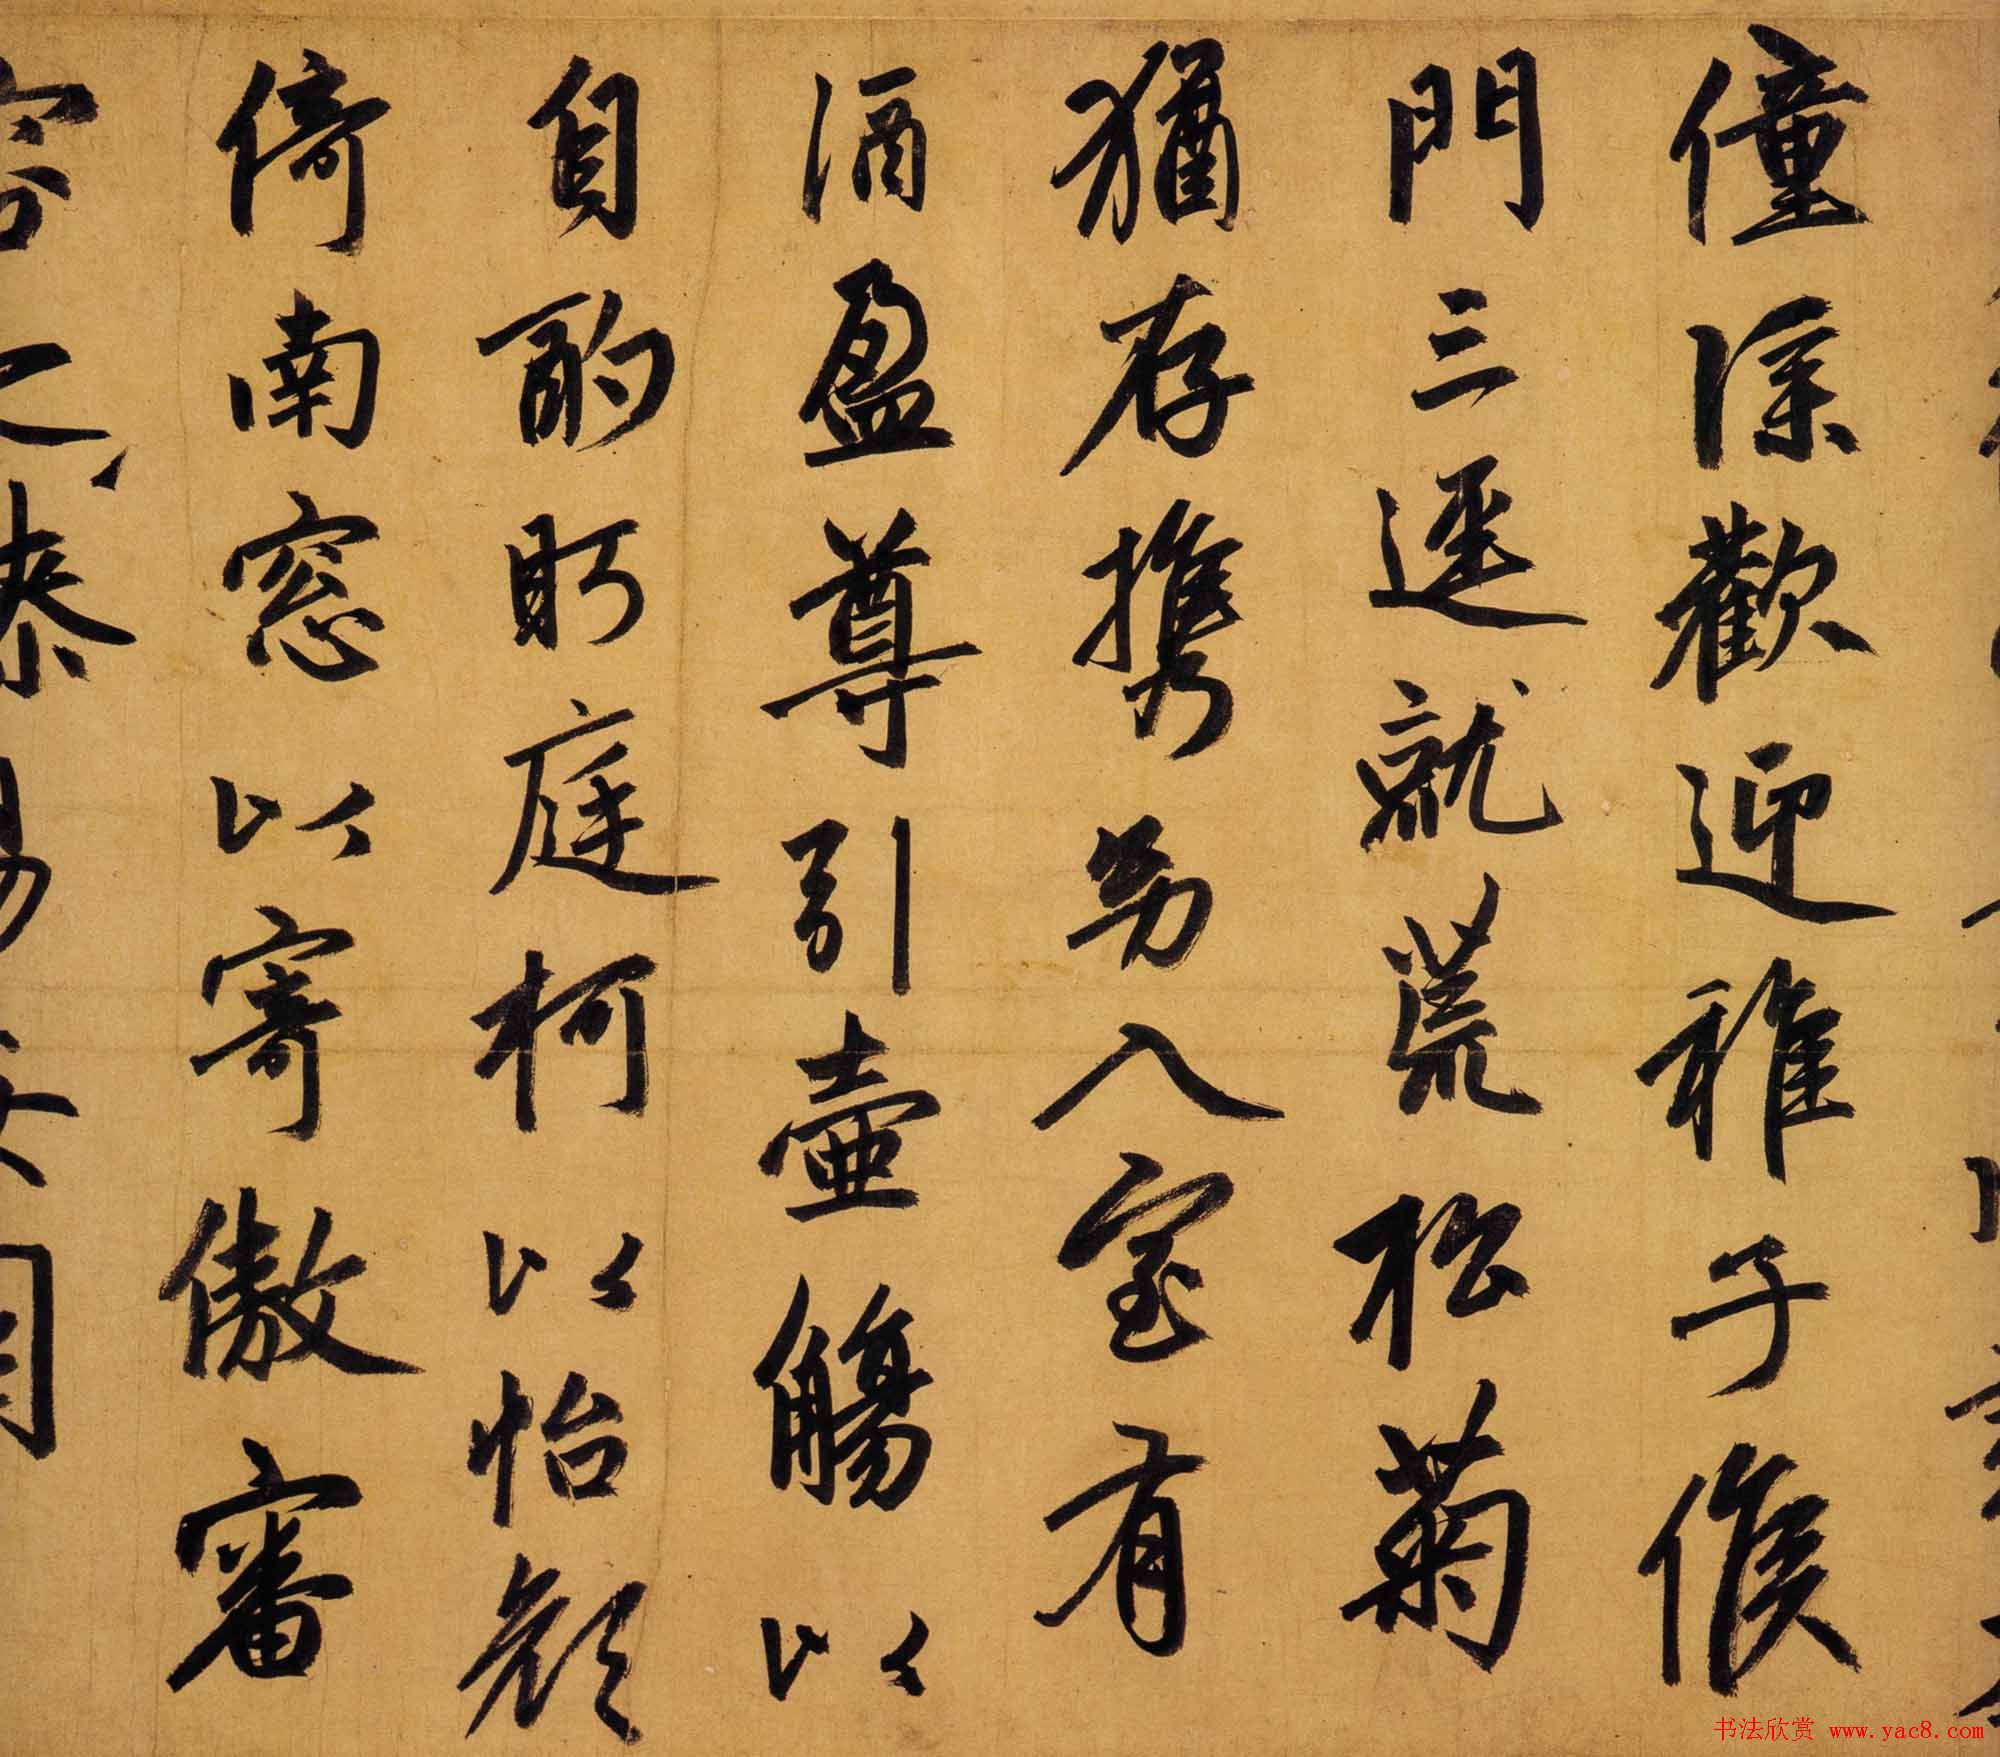 僮僕歡迎稚子候
門三逕就荒松菊
猶存携幼入室有
酒盈尊引壺觴以
自酌眄庭柯以怡顔
倚南窓以寄傲審
容之膝易安
书法欣赏 www.yac8.com